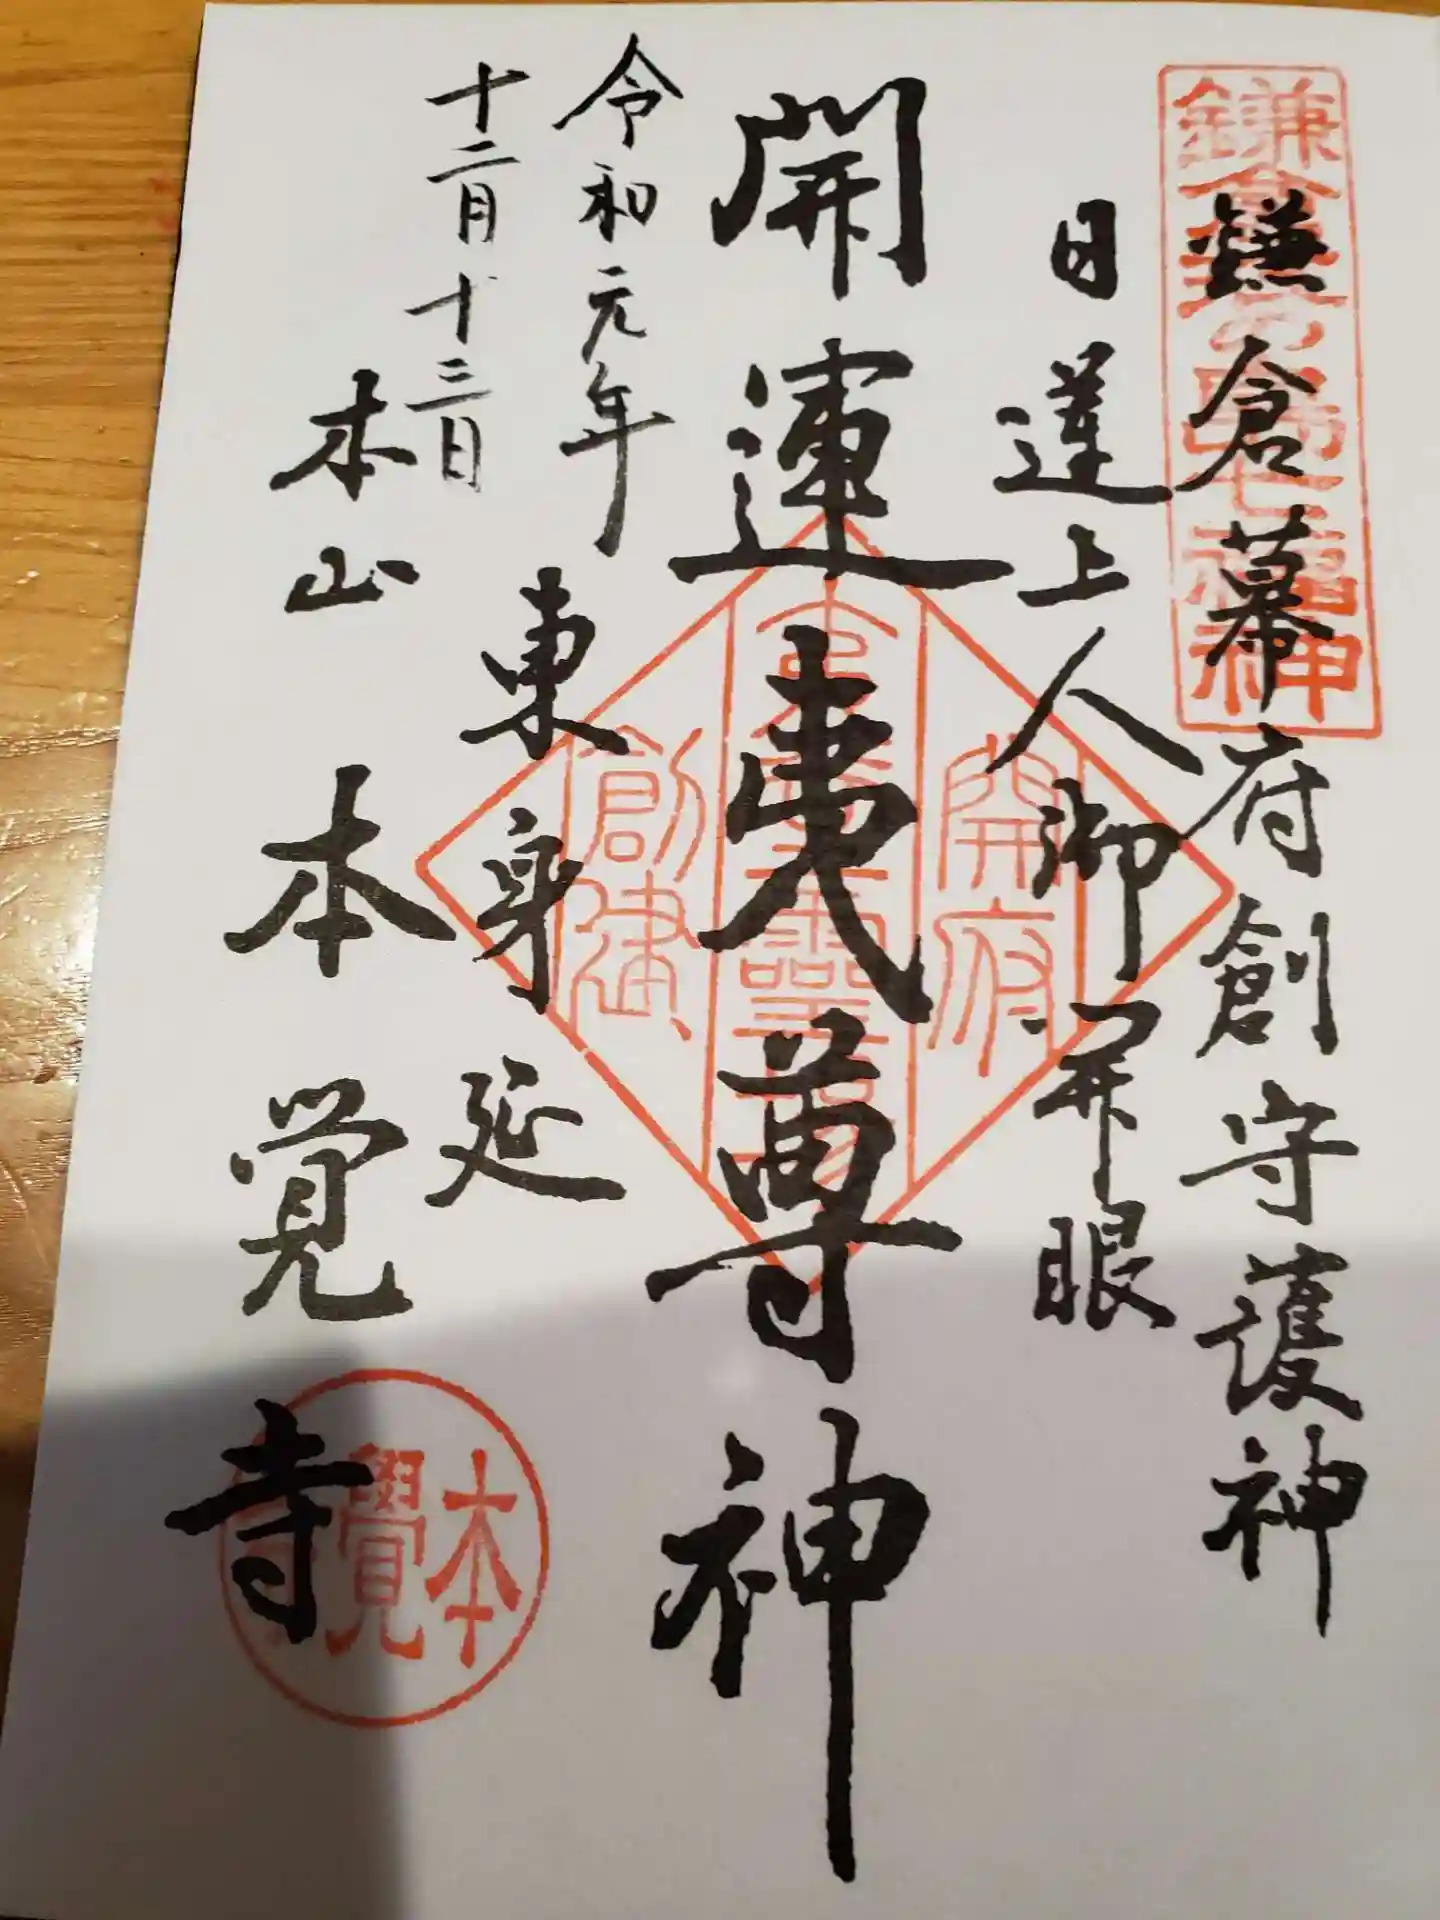 鎌倉江の島七福神
鎌倉幕府創守護神
日蓮上人御開眼
開運夷尊神
開府
創建
令和元年
十二月十三日
東身延
本山
本覚寺
本覺